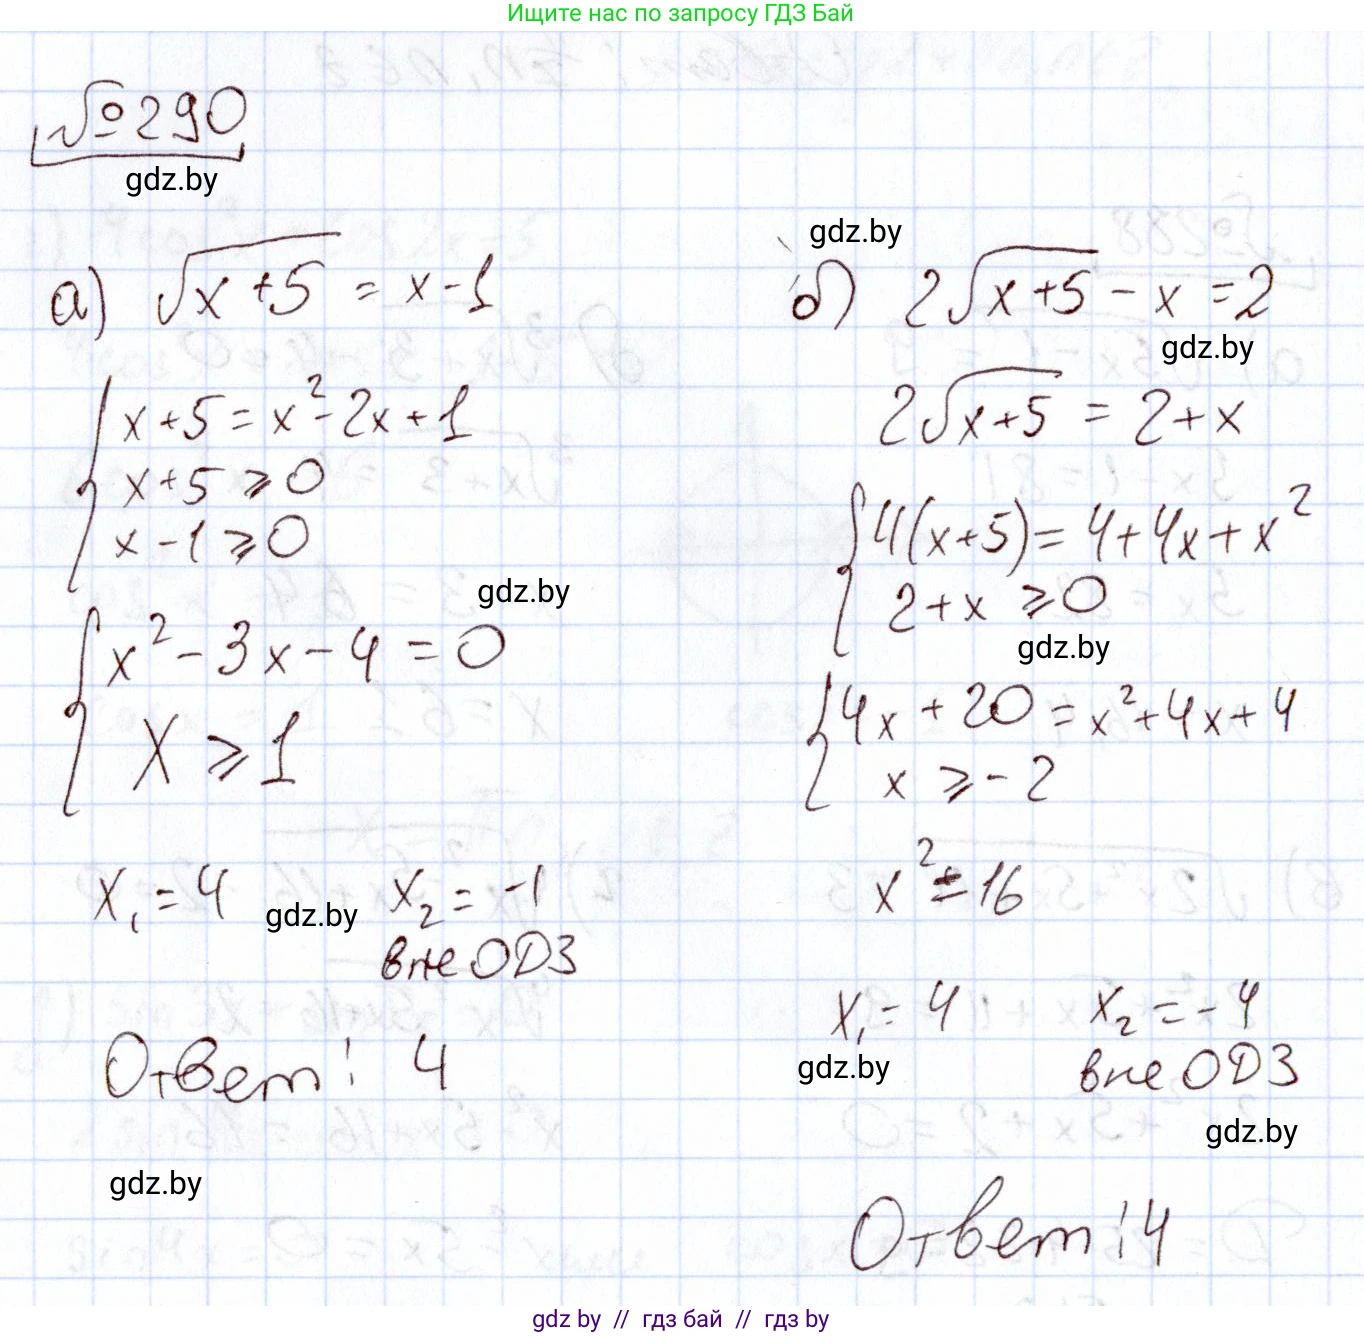 Ищите нас по запросу ГДЗ Бай
№290
gdz.by
а) √(x+5) = x-1
{ x+5 = x²-2x+1
x+5 ⩾ 0
x-1 ⩾ 0
gdz.by
{ x²-3x-4=0
x ⩾ 1
x₁=4 gdz.by x₂=-1
вне ОДЗ
Ответ: 4
gdz.by
gdz.by
б) 2√(x+5) - x = 2
gdz.by
2√(x+5) = 2+x
{ 4(x+5) = 4+4x+x²
2+x ⩾ 0
gdz.by
{ 4x+20 = x²+4x+4
x ⩾ -2
x²=16
x₁=4 x₂=-4
gdz.by вне ОДЗ
gdz.by
Ответ: 4
gdz.by // гдз бай // gdz.by